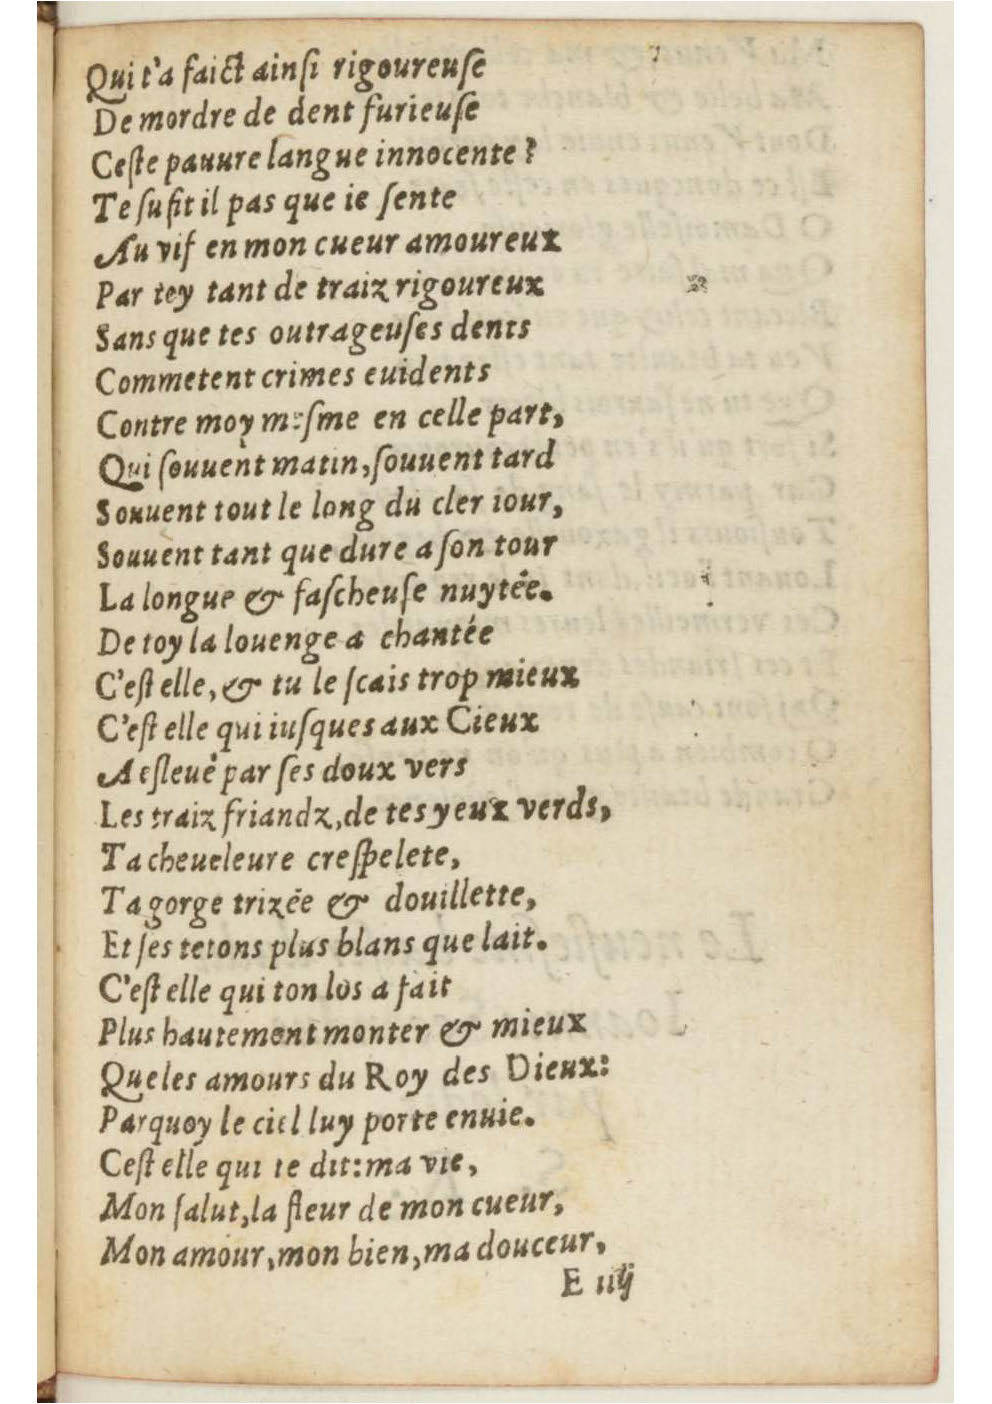 Qui t'a faict ainſi rigoureuſe
De mordre de dent furieuſe
Ceſte pauure langue innocente?
Te ſufit il pas que ie ſente
Au vif en mon cueur amoureux
Par toy tant de traiz rigoureux
Sans que tes outrageuſes dents
Commetent crimes euidents
Contre moy meſme en celle part,
Qui ſouuent matin, ſouuent tard
Souuent tout le long du cler iour,
Souuent tant que dure a ſon tour
La longue & faſcheuſe nuytée.
De toy la louenge a chantée
C'eſt elle, & tu le ſcais trop mieux
C'eſt elle qui iuſques aux Cieux
A eſleué par ſes doux vers
Les traiz friandz, de tes yeux verds,
Ta cheueleure creſpelete,
Ta gorge trizée & douillette,
Et ſes tetons plus blans que lait.
C'eſt elle qui ton los a fait
Plus hautement monter & mieux
Que les amours du Roy des Dieux:
Parquoy le ciel luy porte enuie.
Ceſt elle qui te dit: ma vie,
Mon ſalut, la fleur de mon cueur,
Mon amour, mon bien, ma douceur,
E iiij